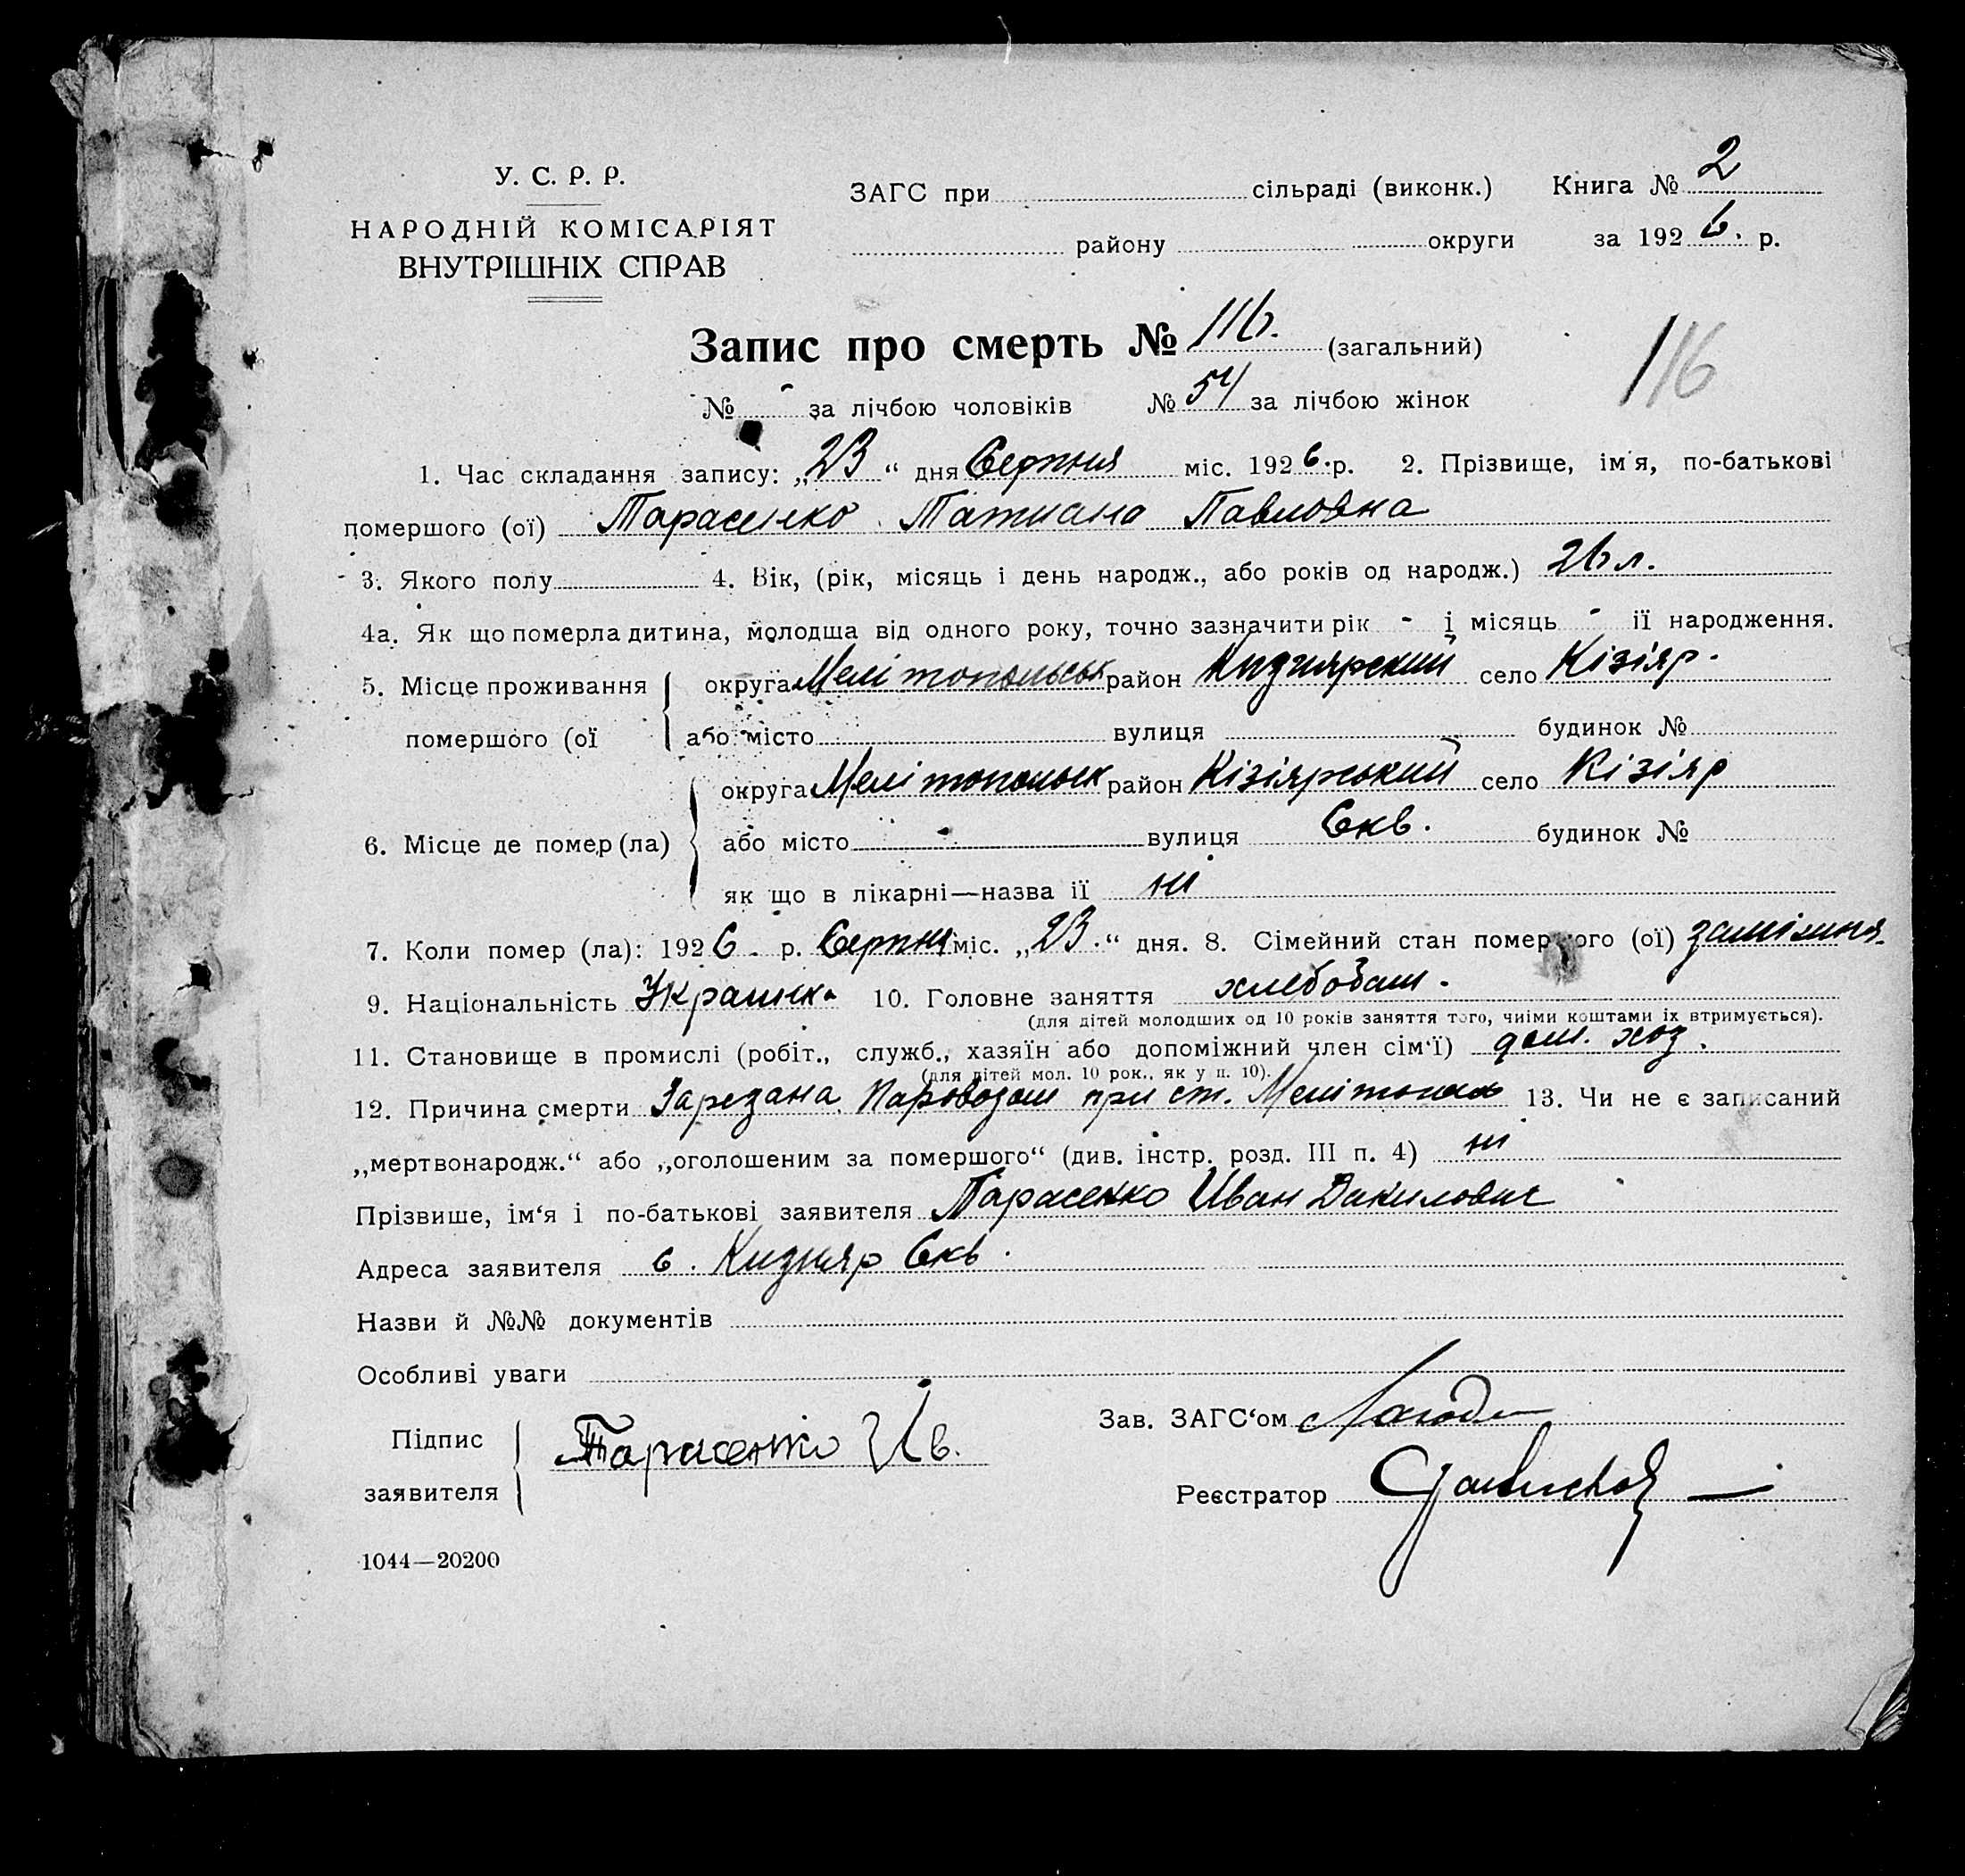 У. С. Р. Р.
НАРОДНІЙ КОМІСАРІЯТ
ВНУТРІШНІХ СПРАВ
ЗАГС при сільраді (виконк.) Книга № 2
району округи за 1926. р.
Запис про смерть № 116. (загальний)
116
№ - за лічбою чоловіків № 54 за лічбою жінок
1. Час складання запису: „23“ дня Серпня міс. 1926. р. 2. Прізвище, ім'я, по-батькові
помершого (ої) Тарасенко Татиана Павловна
3. Якого полу 4. Вік, (рік, місяць і день народж., або років од народж.) 26 л.
4а. Як що померла дитина, молодша від одного року, точно зазначити рік - і місяць - ії народження.
5. Місце проживання округа Мелітопольськ район Кизиярский село Кізіяр.
помершого (ої або місто вулиця будинок №
округа Мелітопольск район Кізіярський село Кізіяр
6. Місце де помер (ла) або місто вулиця Скв. будинок №
як що в лікарні—назва ії ні
7. Коли помер (ла): 1926. р. Серпня міс. „23.“ дня. 8. Сімейний стан помершого (ої) заміжня.
9. Національність Украинка 10. Головне заняття хлебопаш.
(для дітей молодших од 10 років заняття того, чиїми коштами їх втримується).
11. Становище в промислі (робіт., служб., хазяїн або допоміжний член сім'ї) дом. хоз.
(для дітей мол. 10 рок., як у п. 10).
12. Причина смерти Зарезана Паровозом при ст. Мелітополь 13. Чи не є записаний
„мертвонародж.“ або „оголошеним за помершого“ (див. інстр. розд. III п. 4) ні
Прізвише, ім'я і по-батькові заявителя Тарасенко Иван Данилович
Адреса заявителя с. Кизияр Скв.
Назви й №№ документів
Особливі уваги
Підпис заявителя Тарасенко Ив.
Зав. ЗАГС'ом
Реєстратор
1044—20200